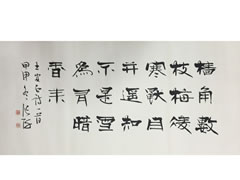 墻角數
枝梅凌
寒獨自
开遥知
不是雪
為有暗
香来
王安石詩一首